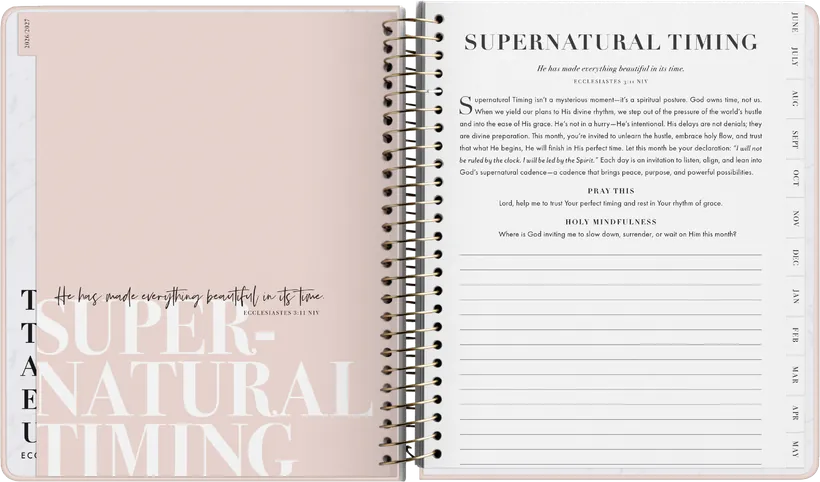 2026/2027
T
T
A
E
U
ECC
He has made everything beautiful in its time.
ECCLESIASTES 3:11 NIV
SUPER-
NATURAL
TIMING
SUPERNATURAL TIMING
He has made everything beautiful in its time.
ECCLESIASTES 3:11 NIV
Supernatural Timing isn't a mysterious moment—it's a spiritual posture. God owns time, not us.
When we yield our plans to His divine rhythm, we step out of the pressure of the world's hustle
and into the ease of His grace. He's not in a hurry—He's intentional. His delays are not denials; they
are divine preparation. This month, you're invited to unlearn the hustle, embrace holy flow, and trust
that what He begins, He will finish in His perfect time. Let this month be your declaration: "I will not
be ruled by the clock. I will be led by the Spirit." Each day is an invitation to listen, align, and lean into
God's supernatural cadence—a cadence that brings peace, purpose, and powerful possibilities.
PRAY THIS
Lord, help me to trust Your perfect timing and rest in Your rhythm of grace.
HOLY MINDFULNESS
Where is God inviting me to slow down, surrender, or wait on Him this month?
JUNE
JULY
AUG
SEPT
OCT
NOV
DEC
JAN
FEB
MAR
APR
MAY